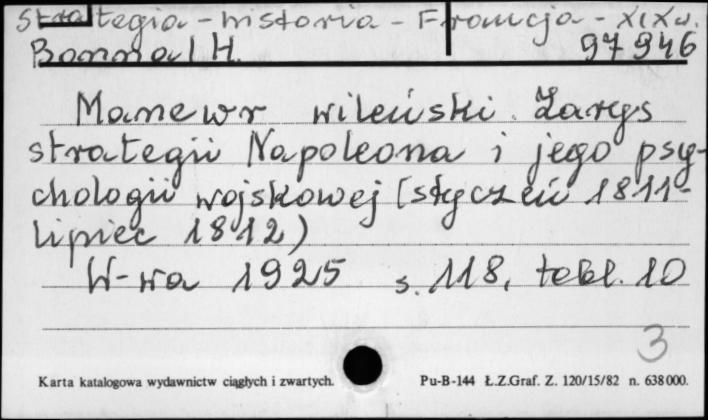 Strategia - historia - Francja - XIX w.
Bonnal H. 97946
Manewr wileński. Zarys
strategii Napoleona i jego psy-
chologii wojskowej (styczeń 1811-
lipiec 1812)
W-wa 1925 s. 118, tabl. 10
3
Karta katalogowa wydawnictw ciągłych i zwartych. Pu-B-144 Ł.Z.Graf. Z. 120/15/82 n. 638000.